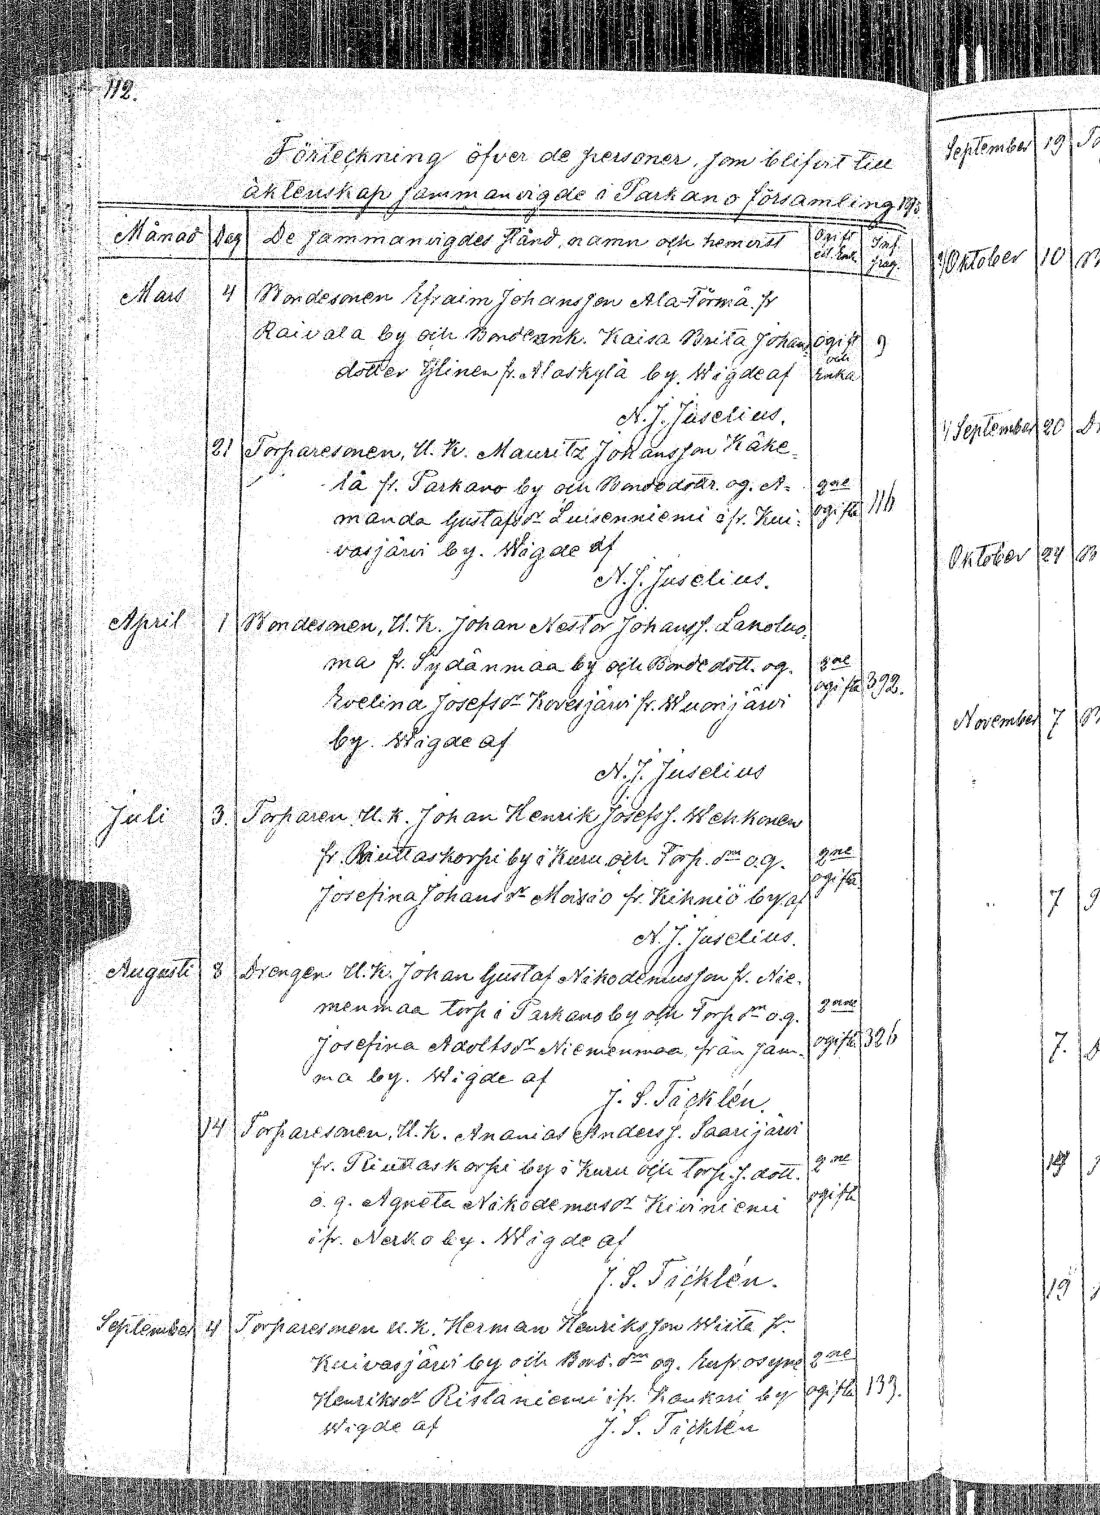 112.
Förteckning öfver de personer, som blifvit till
äktenskap sammanvigde i Parkano församling
Månad Dag De sammanvigdes stånd, namn och hemvist Ogift ell. Enk. Inf. pag.
Mars 4 Bondesonen Efraim Johansson Ala-Törmä fr
Raivala by och Bondeenk. Kaisa Brita Johans ogift 9
dotter Ylinen fr. Alaskylä by. Wigde af och Enka
N. J. Juselius.
21 Torparesonen, U. K. Mauritz Johansson Käke-
lä fr. Parkano by och Bondedottr. og. A- 2ne
manda Gustafsdr Luisenniemi ifr. Kui- ogifta 116
vasjärvi by. Wigde af
N. J. Juselius.
April 1 Bondesonen, U. K. Johan Nestor Johanss. Lanoluo-
ma fr. Sydänmaa by och Bondedott. og. 2ne
Evelina Josefsdr Kovesjärvi fr. Wuorijärvi ogifta 392.
by. Wigde af
N. J. Juselius
Juli 3. Torparen U. K. Johan Henrik Josefss. Wehkonen
fr. Riuttaskorpi by i Kuru och Torp. dm og. 2ne
Josefina Johansdr Moisio fr. Kihniö by. af ogifta
N. J. Juselius.
Augusti 8 Drengen U. K. Johan Gustaf Nikodemusson fr. Nie-
menmaa torp i Parkano by och Torp dm o.g. 2nne
Josefina Adolfsdr Niemenmaa, från Jäm- ogifta 326
mä by. Wigde af
J. S. Täcklén.
14 Torparesonen, U. K. Ananias Anderss. Saarijärvi
fr. Riuttaskorpi by i Kuru och torp. s. dott. 2ne
o. g. Agneta Nikodemusdr Kiviniemi ogifta
ifr. Nerko by. Wigde af
J. S. Täcklén.
September 4 Torparesonen U. K. Herman Henriksson Wirta fr.
Kuivasjärvi by och Bond. dm og. Eufrosyne 2ne
Henriksdr Ristaniemi ifr. Kankari by ogifta 139.
Wigde af J. S. Täcklén
September 19
Oktober 10
September 20
Oktober 24
November 7
7
7.
14
19